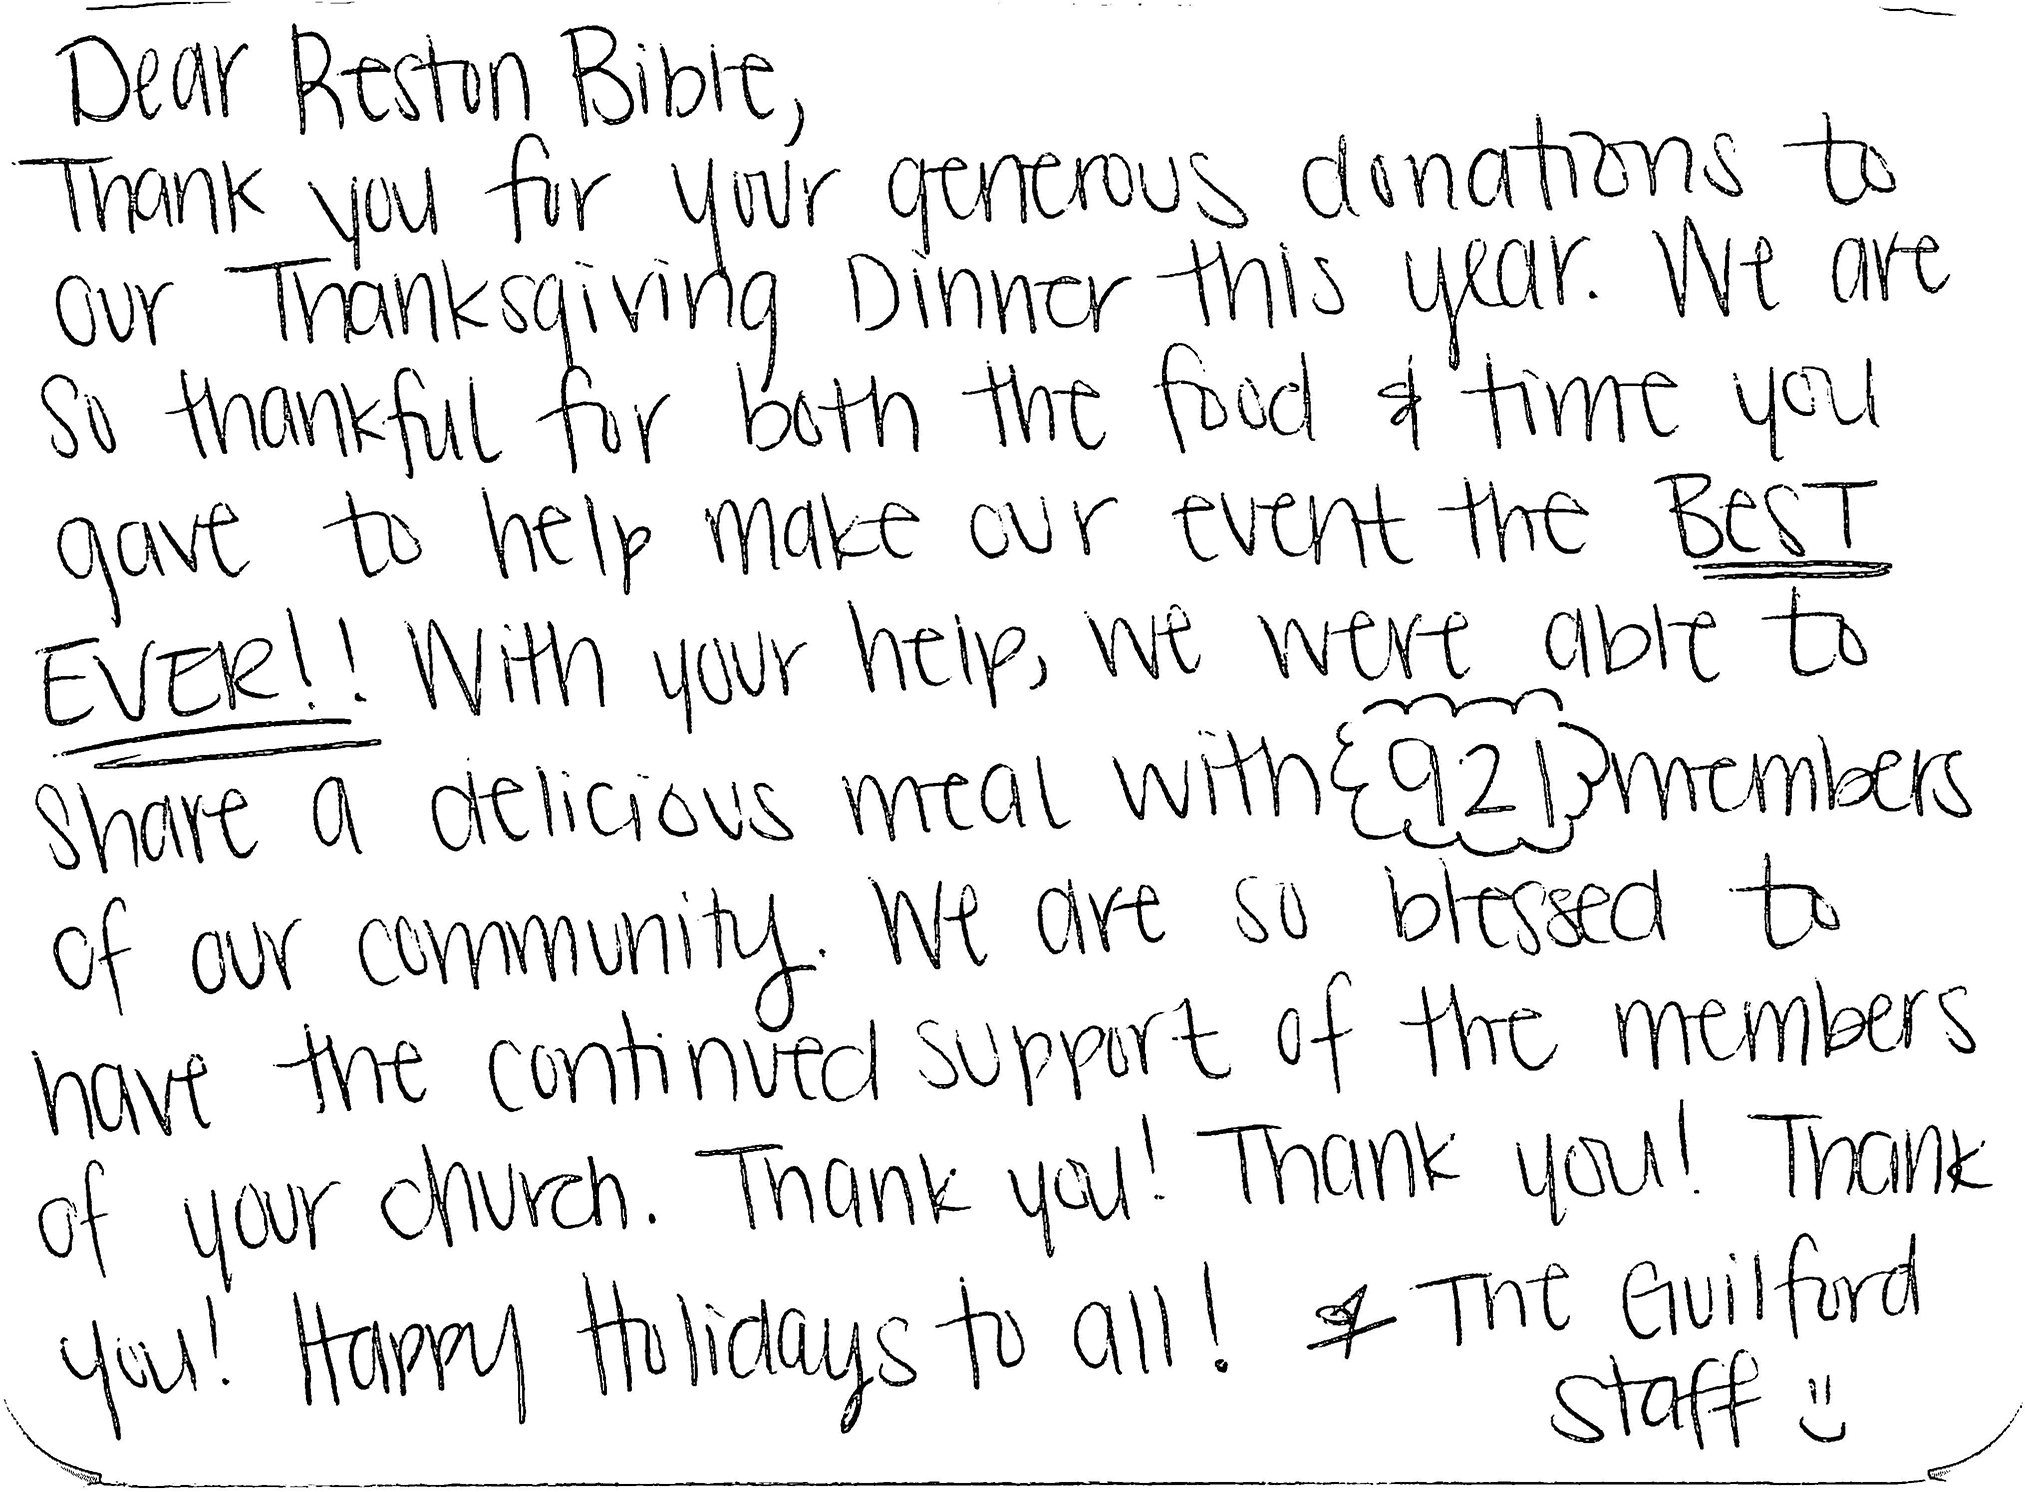 Dear Reston Bible,
Thank you for your generous donations to
our Thanksgiving Dinner this year. We are
so thankful for both the food & time you
gave to help make our event the BEST
EVER!! With your help, we were able to
share a delicious meal with {921} members
of our community. We are so blessed to
have the continued support of the members
of your church. Thank you! Thank you! Thank
you! Happy Holidays to all! The Guilford
staff :)